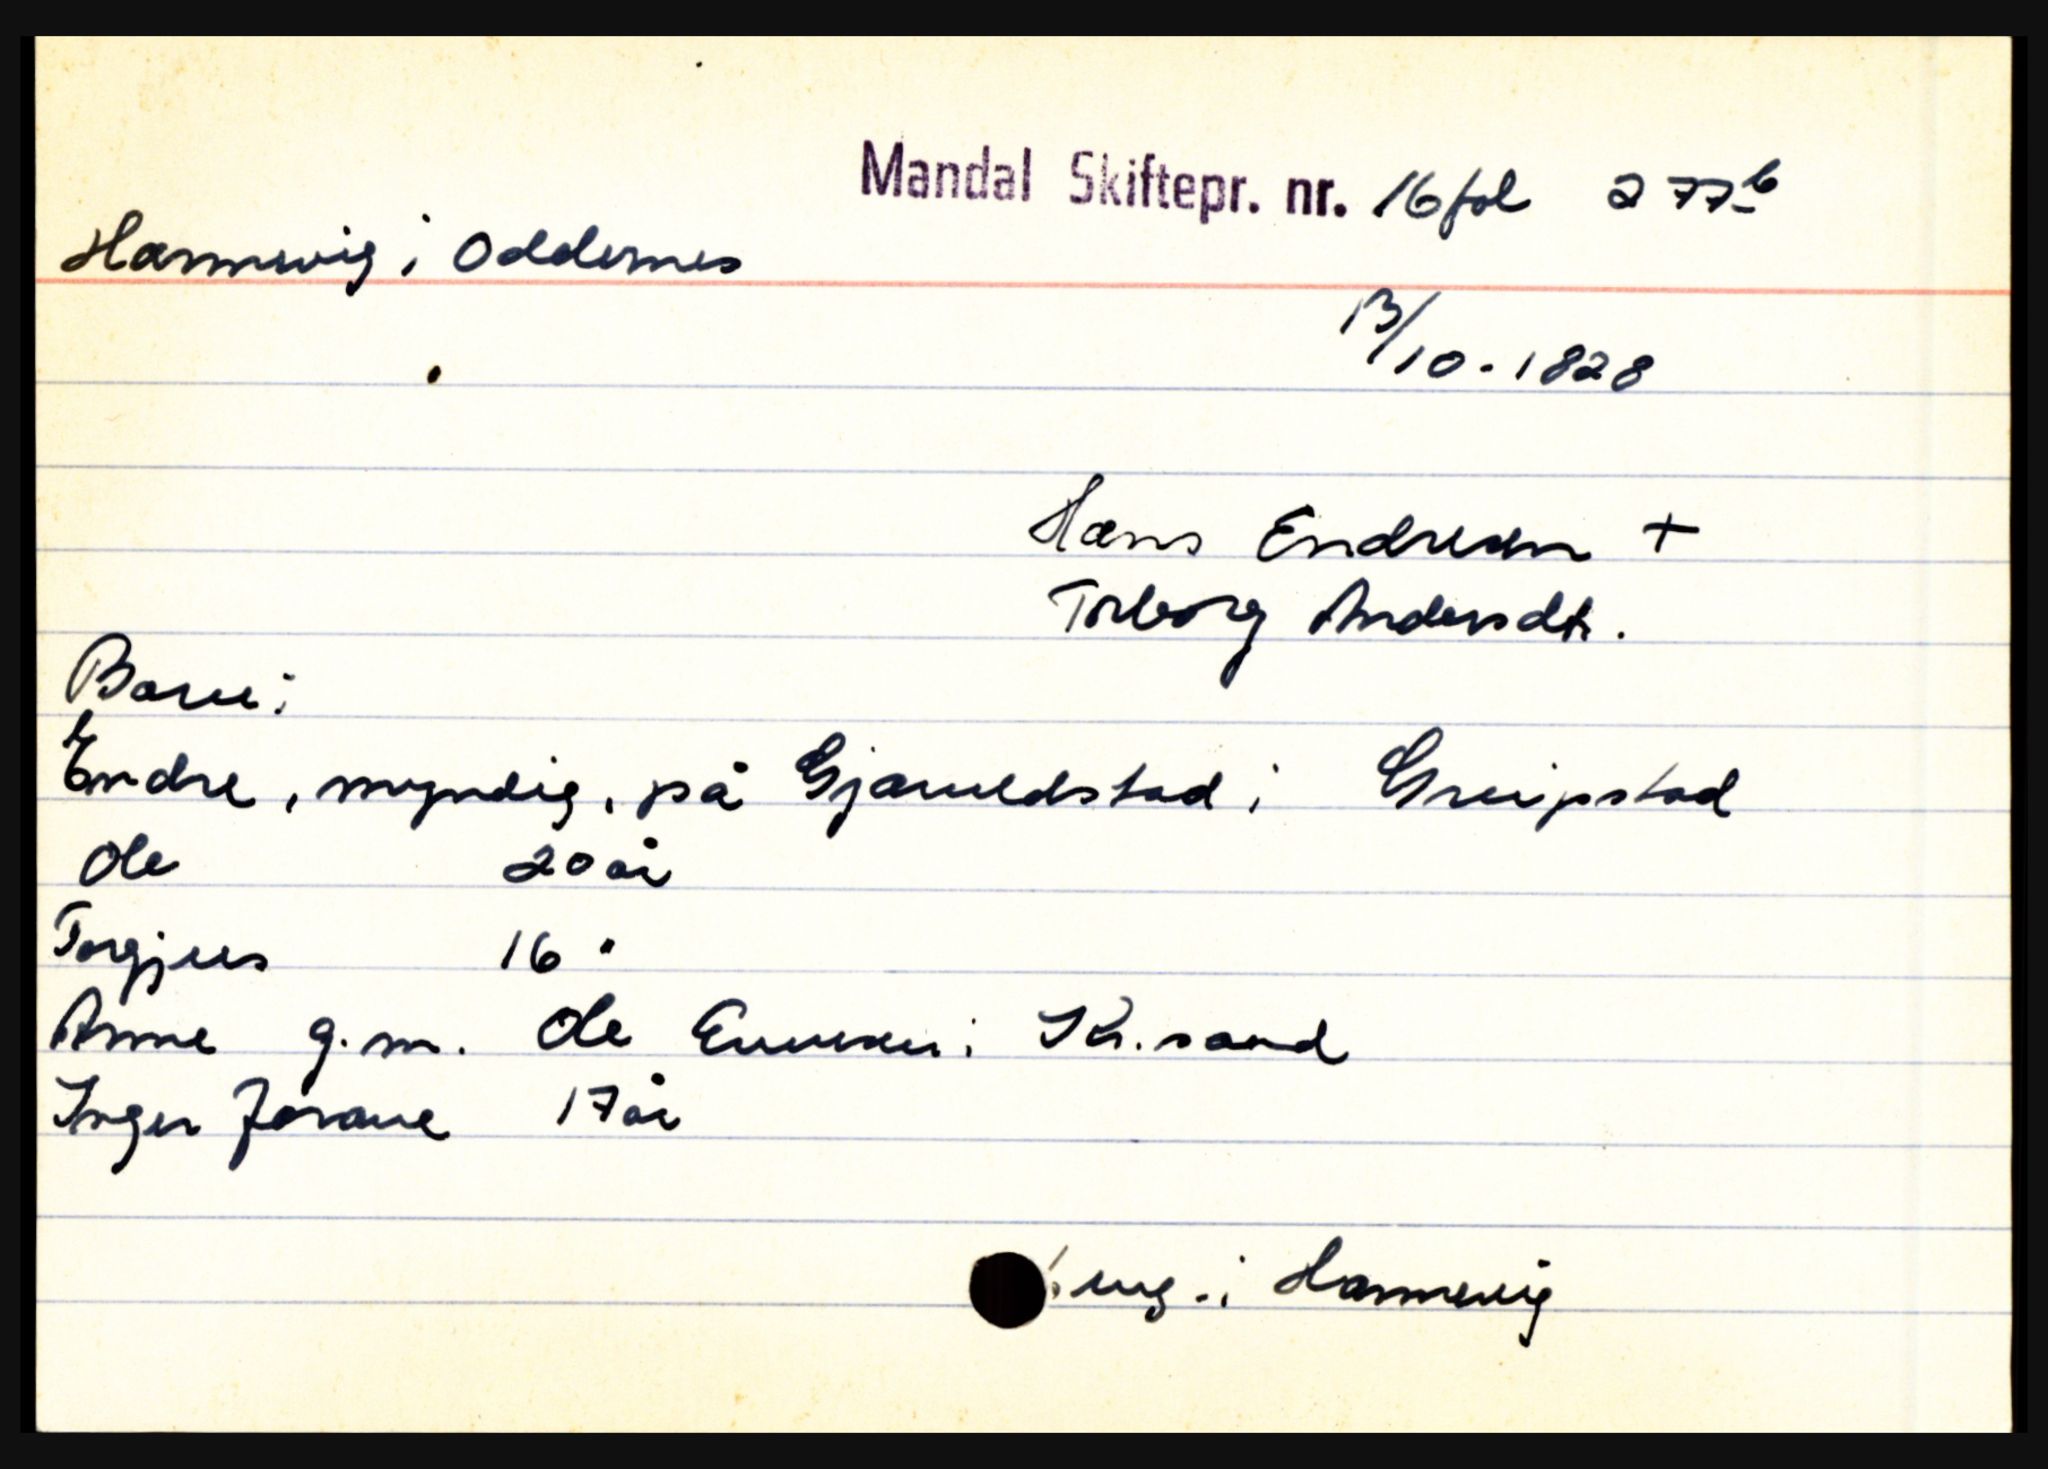 Mandal Skiftepr. nr. 16 fol 277b
Hannevig i Oddernes
13/10-1828
Hans Endresen +
Torborg Andersdtr.
Barn:
Endre, myndig, på Gjervoldstad i Greipstad
Ole 20 år
Torgjus 16 "
Anne g.m. Ole Evensen i Kr.sand
Inger Jorane 17 år
eng. i Hannevig